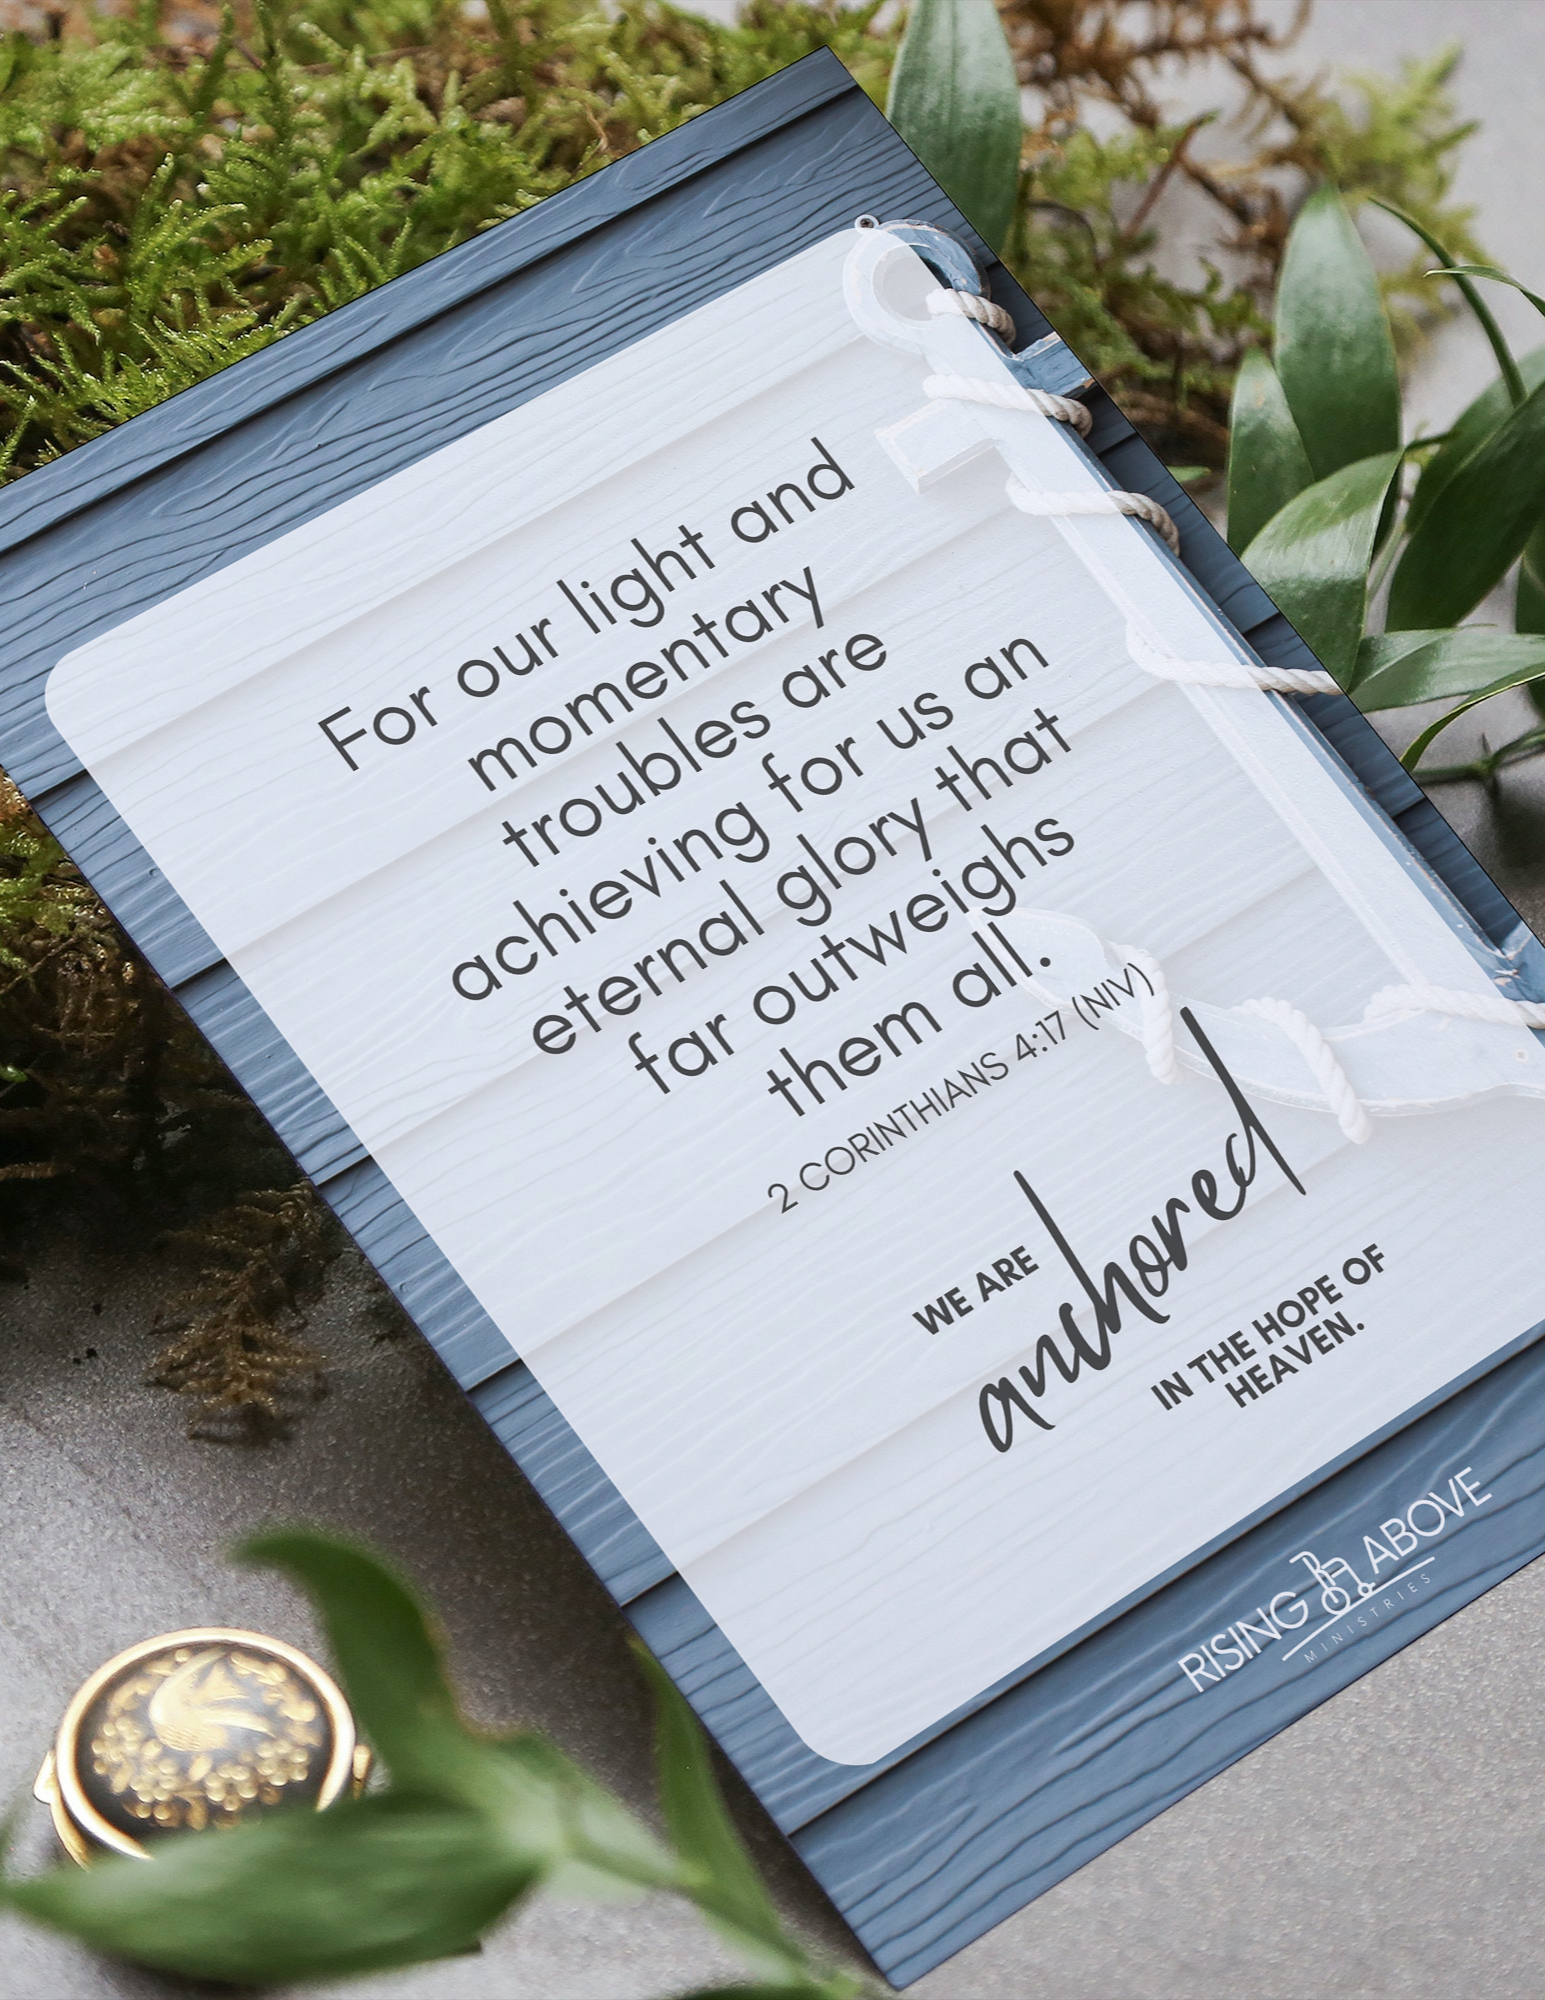 For our light and
momentary
troubles are
achieving for us an
eternal glory that
far outweighs
them all.
2 CORINTHIANS 4:17 (NIV)
WE ARE
anchored
IN THE HOPE OF
HEAVEN.
RISING RA ABOVE
MINISTRIES